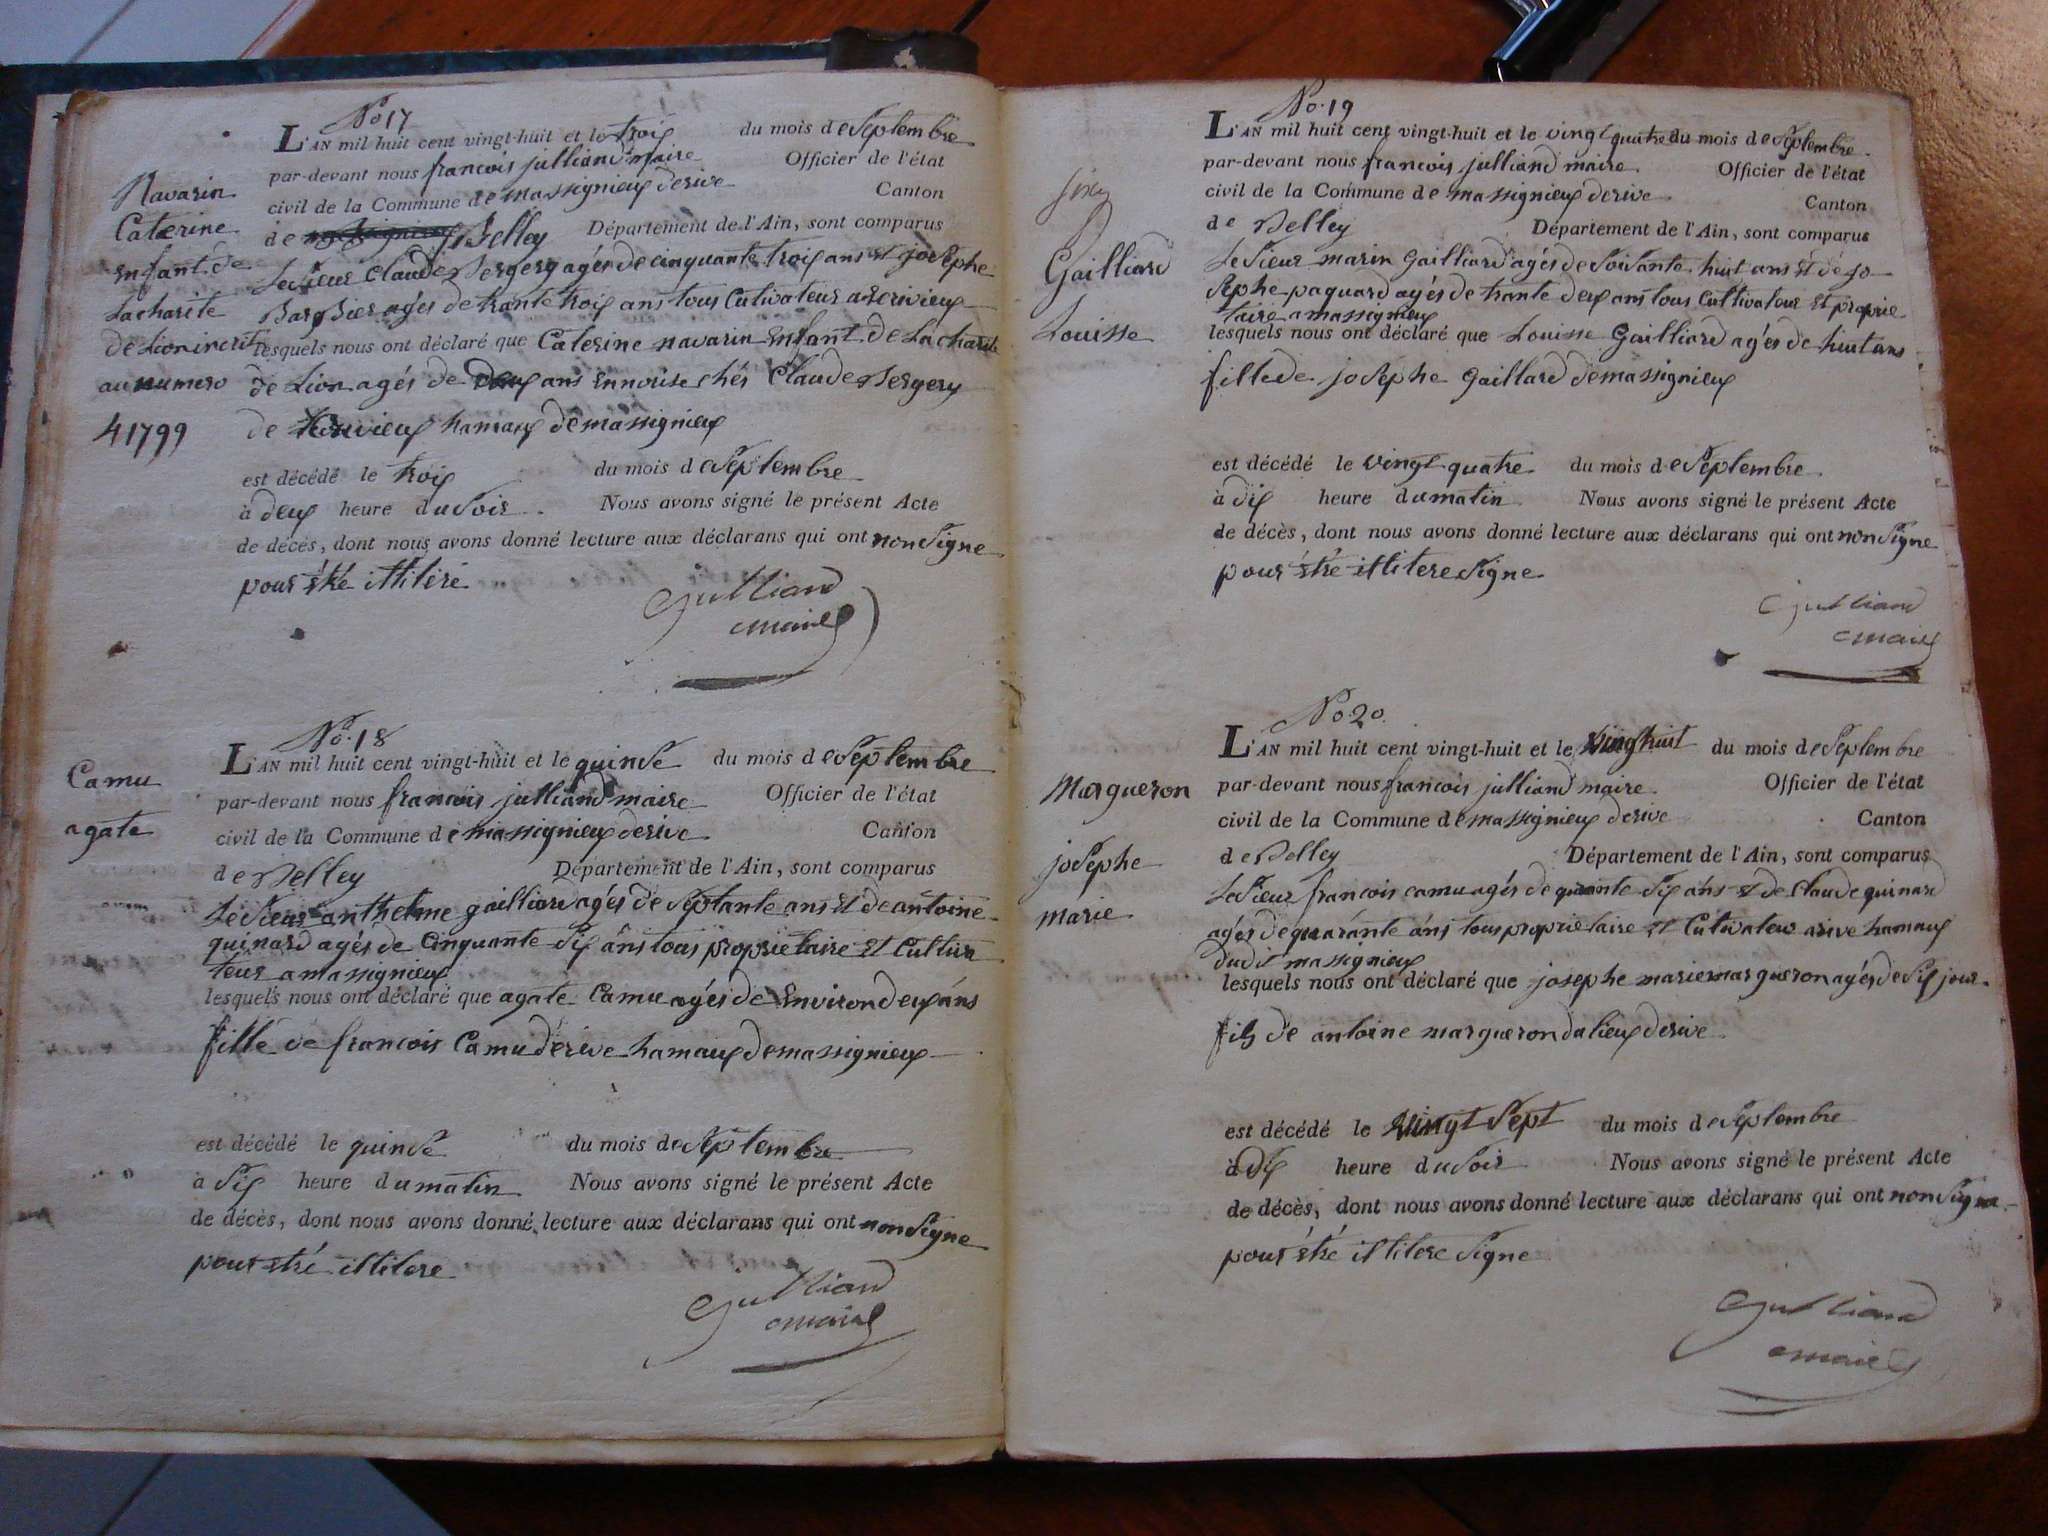 No 17
L'AN mil huit cent vingt-huit et le trois du mois de Septembre
par-devant nous francois julliand maire Officier de l'état
civil de la Commune de massignieux derive Canton
de Belley Département de l'Ain, sont comparus
Le Sieur Claude Bergery agés de cinquante trois ans et josephe
Barbier agés de trante trois ans tous Cultivateur a
lesquels nous ont déclaré que Caterine navarin Enfant de La charite
de Lion agés de deux ans en nourise chés Claude Bergery
de hamaux de massignieux
est décédé le trois du mois de Septembre
à deux heure du Soir. Nous avons signé le présent Acte
de décès, dont nous avons donné lecture aux déclarans qui ont non Signe
pour étré ittiléré
Julliand
maire
Navarin
Caterine
enfant de
La charite
de Lion inscrit
au numero
41799
No. 18
L'AN mil huit cent vingt-huit et le quinse du mois de Septembre
par-devant nous francois julliand maire Officier de l'état
civil de la Commune de massignieux derive Canton
de Belley Département de l'Ain, sont comparus
Le Sieur anthelme gailliard agés de Septante ans et de antoine
quinard agés de Cinquante Six ans tous proprietaire et Cultiva
teur a massignieux
lesquels nous ont déclaré que agate Camu agés de Environ deux ans
fille de francois Camu derive hamaux de massignieux
est décédé le quinse du mois de Septembre
à Six heure du matin Nous avons signé le présent Acte
de décès, dont nous avons donné lecture aux déclarans qui ont non Signe
pour étré ittilere
Julliand
maire
Camu
agate
No. 19
L'AN mil huit cent vingt-huit et le vingt quatre du mois de Septembre
par-devant nous francois julliand maire Officier de l'état
civil de la Commune de massignieux derive Canton
de Belley Département de l'Ain, sont comparus
Le Sieur marin Gailliard agés de Soisante huit ans et de jo
Sephe paquard agés de trante deux ans tous Cultivateur et proprie
taire a massignieux
lesquels nous ont déclaré que Louisse Gailliard agés de huit ans
fille de josephe Gaillard de massignieux
est décédé le vingt quatre du mois de Septembre
à dix heure du matin Nous avons signé le présent Acte
de décès, dont nous avons donné lecture aux déclarans qui ont non Signe
pour étré ittilere Signe
Julliand
maire
Gailliard
Louisse
No. 20
L'AN mil huit cent vingt-huit et le vingt huit du mois de Septembre
par-devant nous francois julliand maire Officier de l'état
civil de la Commune de massignieux derive Canton
de Belley Département de l'Ain, sont comparus
Le Sieur francois camu agés de quarante Six ans et de Claude quinard
agés de quarante ans tous proprietaire et Cultivateur a rive hamaux
dudit massignieux
lesquels nous ont déclaré que josephe marie margueron agés de Six jour
fils de antoine margueron du lieux derive
est décédé le vingt Sept du mois de Septembre
à dix heure du Soir Nous avons signé le présent Acte
de décès, dont nous avons donné lecture aux déclarans qui ont non Signe
pour étré ittilere Signe
Julliand
maire
Margueron
josephe
marie